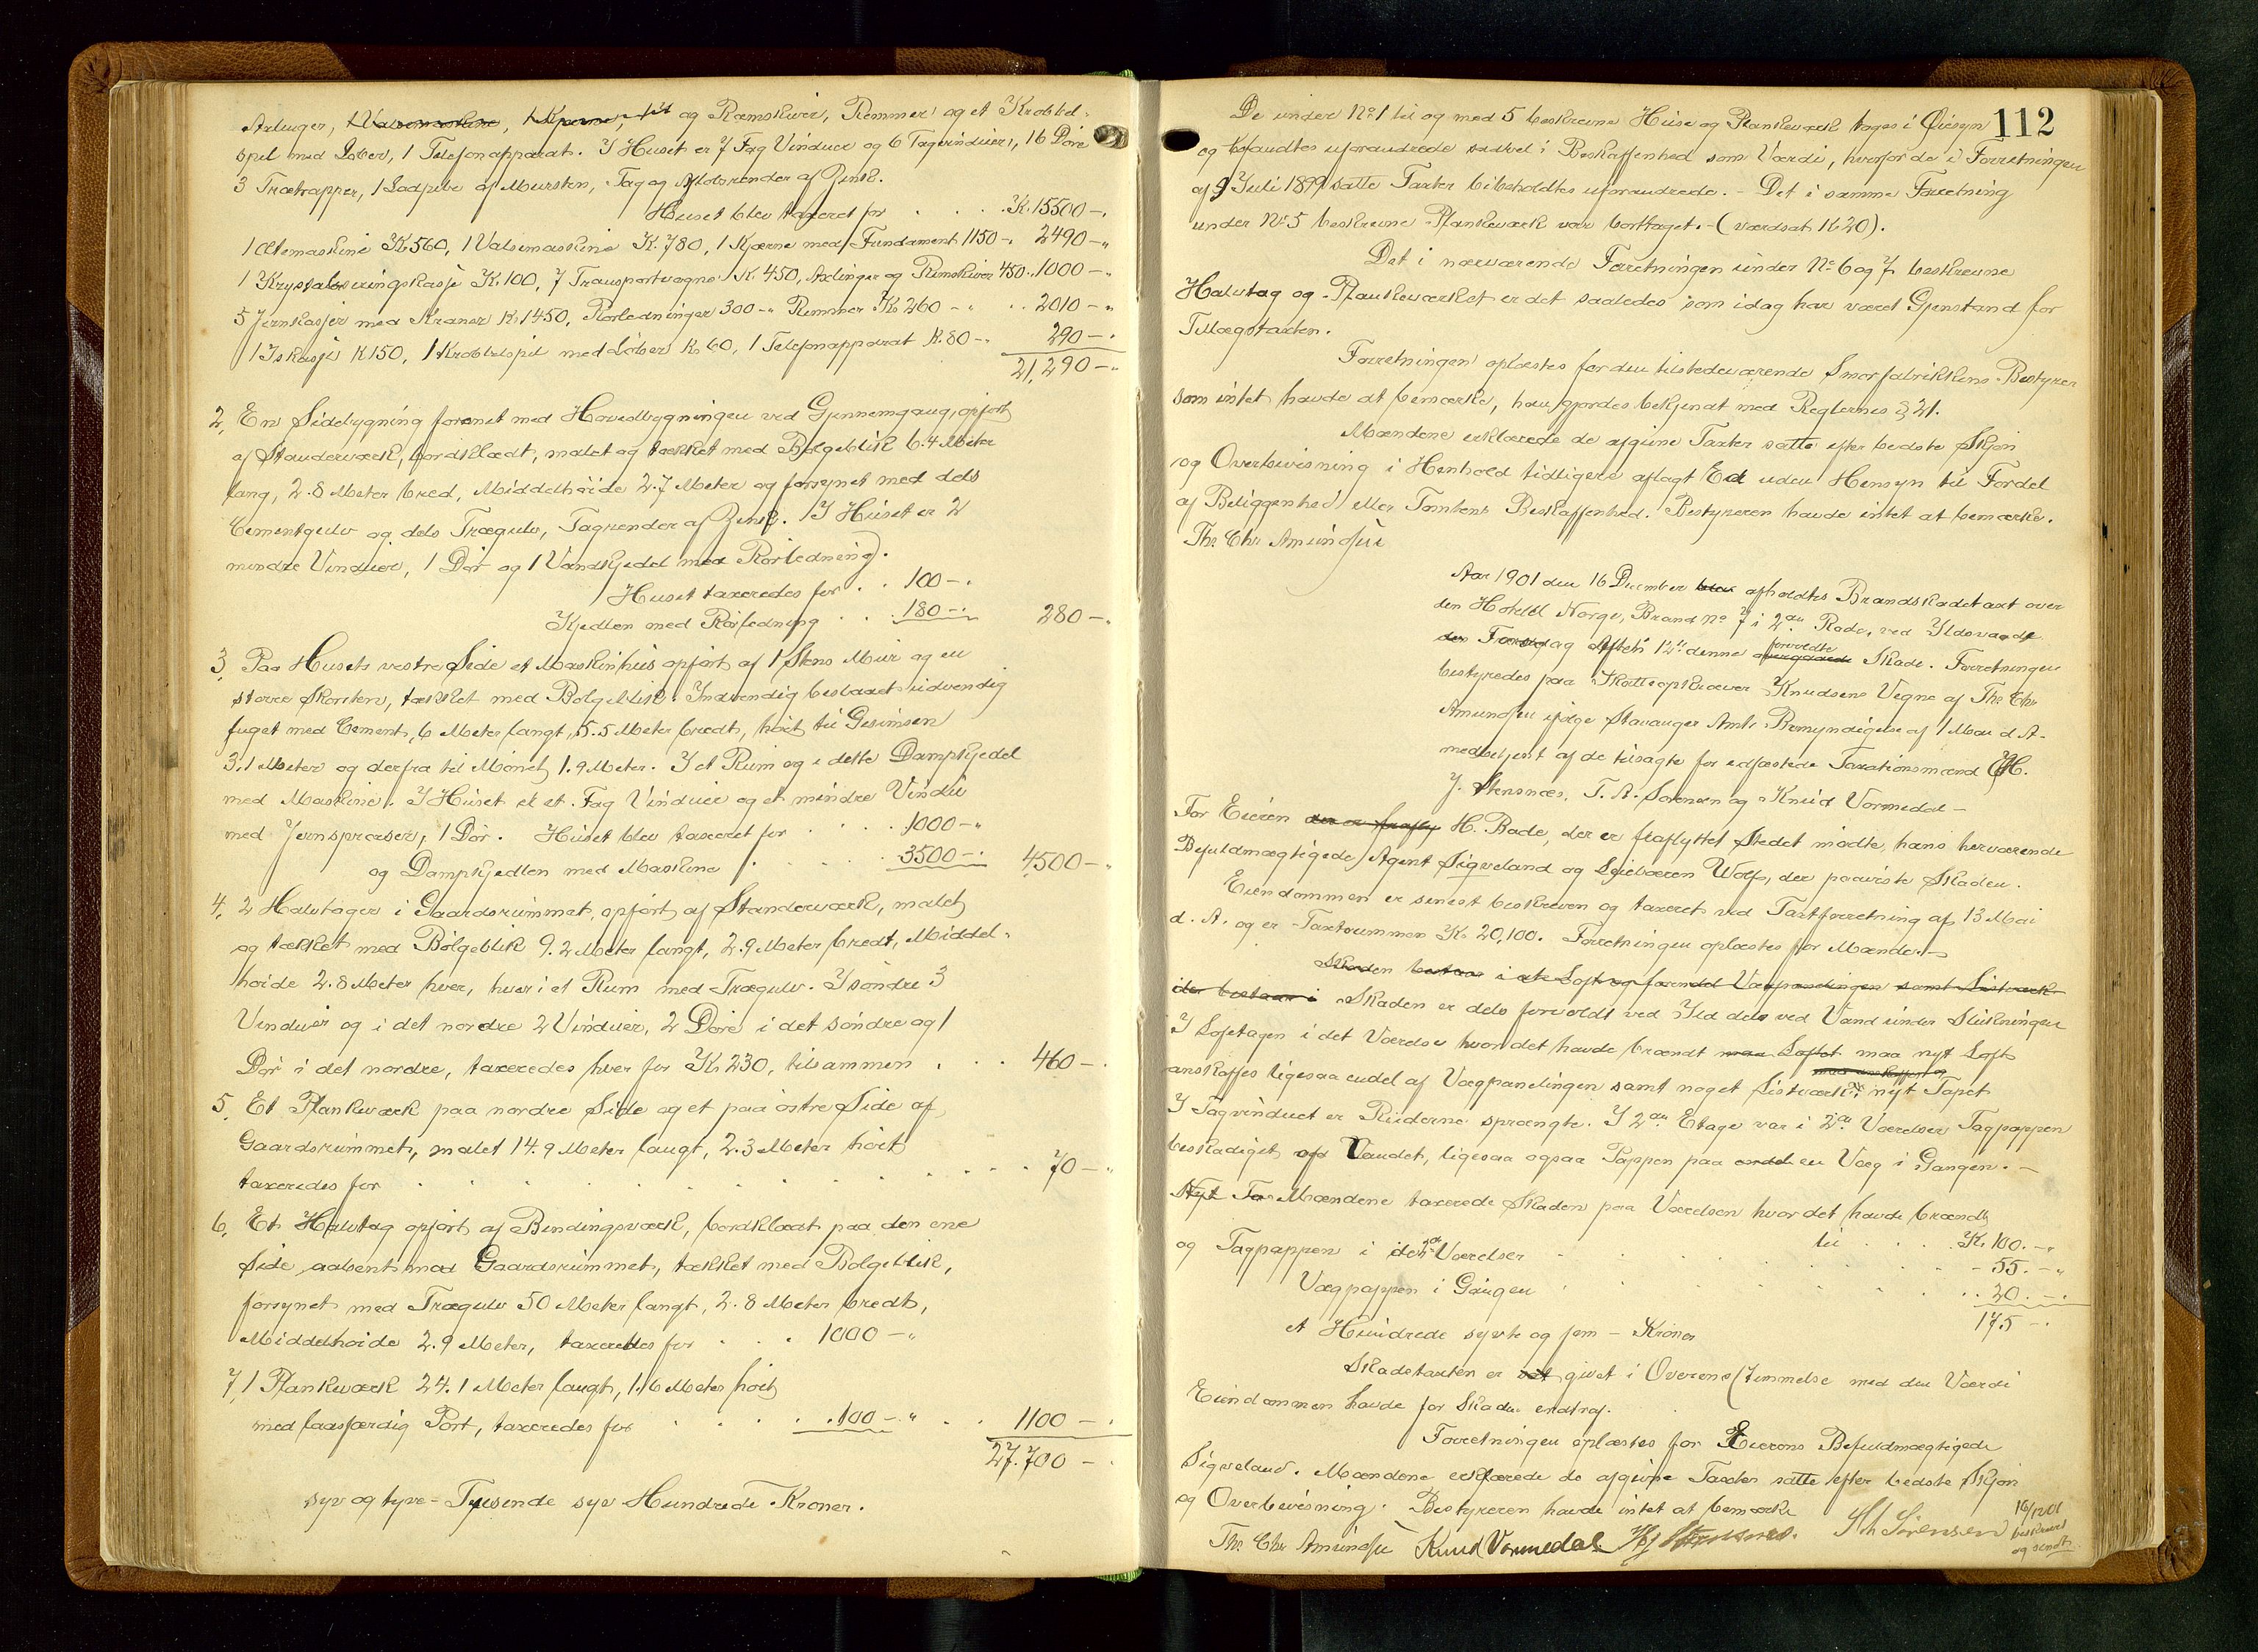 Axlinger, 1 Valsemaskine, 1 Kjerne, og Remskiver, Remmer og et Krobbel-
spil med Löber, 1 Telefonapparat. I Huset er 7 Fag Vinduer og 6 Tagvinduer, 16 Döre
3 Trætrapper, 1 Ladpibe af Mursten, Tag og Aflöbsrender af Zink.
Huset blev taxeret for . . . . K. 15500 -.
1 Æltemaskine K. 560, 1 Valsemaskine K. 780, 1 Kjærne med Fundament 1150 -. 2490 -"
1 Krystaliseringskasse K. 100, 7 Transportvogne K. 450, Axlinger og Remskiver 450. 1000 -"
5 Jernkasser med Kraner K. 1450, Rörledninger 300 -" Remmer K. 260 -" . . 2010 -"
1 Iskasse K 150, 1 Krobbelspil med Löber K. 60, 1 Telefonapparat K. 80 - 290 -.
21,290 -"
2, En Sidebygning forenet med Hovedbygningen ved Gjennemgang, opfört
af Standerværk, bordklædt, malet og tækket med Bölgeblik 6.4 Meter
lang, 2.8 Meter bred, Middelhöide 2.7 Meter og forsynet med dels
Cementgulv og dels Trægulv, Tagrender af Zink. I Huset er 2
mindre Vinduer, 1 Dör og 1 Vandkjedel med Rörledning.
Huset taxeredes for . . 100 -.
Kjedlen med Rörledning . . 180 -. 280 -.
3, Paa Husets vestre Side et Maskinhus opfört af 1 Stens Mur og en
större Skorsten, tækket med Bölgeblik. Indvendig beslaaet udvendig
fuget med Cement, 6 Meter langt, 5.5 Meter bredt, höit til Gesimsen
3.1 Meter og derfra til Mönet 1.9 Meter. I et Rum og i dette Dampkjedel
med Maskine. I Huset er et Fag Vinduer og et mindre Vindu
med Jernsprosser, 1 Dör. Huset blev taxeret for . . . . 1000 -"
og Dampkjedlen med Maskine . . . . . 3500 -. 4500 -"
4, 2 Halvtager i Gaardsrummet, opfört af Standerværk, malet
og tækket med Bölgeblik 9.2 Meter langt, 2.9 Meter bredt, Middel-
höide 2.8 Meter hver, hver i et Rum med Trægulv. I söndre 3
Vinduer og i det nordre 2 Vinduer, 2 Döre i det söndre og 1
Dör i det nordre, taxeredes hver for K. 230, tilsammen . . . 460 -.
5, Et Plankeværk paa nordre Side og et paa östre Side af
Gaardsrummet, malet 14.9 Meter langt, 2.3 Meter höit
taxeredes for . . . . . . . . . . . . 70 -"
6, Et Halvtag opfört af Bindingsværk, bordklædt paa den ene
Side aabent mod Gaardsrummet, tækket med Bölgeblik,
forsynet med Trægulv 50 Meter langt, 2.8 Meter bredt,
Middelhöide 2.9 Meter, taxeredes for . . . 1000 -"
7, 1 Plankeværk 24.1 Meter langt, 1.6 Meter höit
med laasfærdig Port, taxeredes for . . . . 100 -" . . 1100 -.
27.700 -.
syv og tyve - Tusende syv Hundrede Kroner.
112
De under No 1 til og med 5 beskrevne Huse og Plankeværk toges i Öiesyn
og befandtes uforandrede saavel i Beskaffenhed som Værdi, hvorfor de i Forretningen
af 9 Juli 1899 satte Taxter bibeholdtes uforandrede. - Det i samme Forretning
under No 5 beskrevne Plankeværk var borttaget. - (værdsat K 20).
Det i nærværende Forretningen under No 6 og 7 beskrevne
Halvtag og Plankeværket er det saaledes som idag har været Gjenstand for
Tillægstaxten.
Forretningen oplæstes for den tilstedeværende Smörfabrikkens Bestyrer
som intet havde at bemærke, han gjordes bekjendt med Reglernes § 21.
Mændene erklærede de afgivne Taxter satte efter bedste Skjön
og Overbevisning i Henhold tidligere aflagt Ed uden Hensyn til Fordel
af Beliggenhed eller Tomtens Beskaffenhed. Bestyreren havde intet at bemærke.
Ths. Chr Amundsen
Aar 1901 den 16 December blev afholdtes Brandskadetaxt over
den Hotell Norge, Brand No 7 i 2den Rode, ved Ildsvaade
den Torsdag Aften 12te denne overgaaede forvoldte Skade. Forretningen
bestyredes paa Skatteopkræver Knudsens Vegne af Ths. Chr
Amundsen ifölge Stavanger Amts Bemyndigelse af 1 Mai d. A.
medbetjent af de tilsagte for edfæstede Taxationsmænd H.
J. Stensnæs, T. A. Sörensen og Knud Vormedal -
For Eieren der er frafly H. Bade, der er fraflyttet Stedet mödte, hans herværende
Befuldmægtigede Agent Sigveland og Leieboeren Wolf, der paaviste Skaden.
Eiendommen er senest beskreven og taxeret ved Taxtforretning af 13 Mai
d. A. og er Taxtsummen K. 20,100. Forretningen oplæstes for Mændene -
Skaden bestaar i at Loft og forendel Vægpanelingen samt Listværk
der bestaar i Skaden er dels forvoldt ved Ild dels ved Vand under Slukningen
I Loftetagen i det Værelse hvor det havde brændt maa Loftet maa nyt Loft
anskaffes ligesaa endel af Vægpanelingen samt noget Listværk maa anskaffes og nyt Tapet
I Tagvinduet er Ruderne sprængte. I 2den Etage var i 2de Værelser Tagpappen
beskadiget af Vandet, ligesaa ogsaa Pappen paa endel en Væg i Gangen. -
Nyt Ta Mændene taxerede Skaden paa Værelsen hvor det havde brændt
til . . . K. 100. -"
og Tagpappen i de 2de Værelser - . . . . . . - 55. -"
Vægpappen i Gangen . . . . . . . . 20. -.
175 -.
et Hundrede sytti og fem - Kroner
Skadetaxten er sat givet i Overensstemmelse med den Værdi
Eiendommen havde for Skaden indtraf.
Forretningen oplæstes for Eierens Befuldmægtigede
Sigveland. Mændene erklærede de afgivne Taxter satte efter bedste Skjön
og Overbevisning. Bestyreren havde intet at bemærke
Ths. Chr Amundsen Knud Vormedal. H J Stensnæs. T A Sörensen
16/12 01
beskrevet
og sendt.